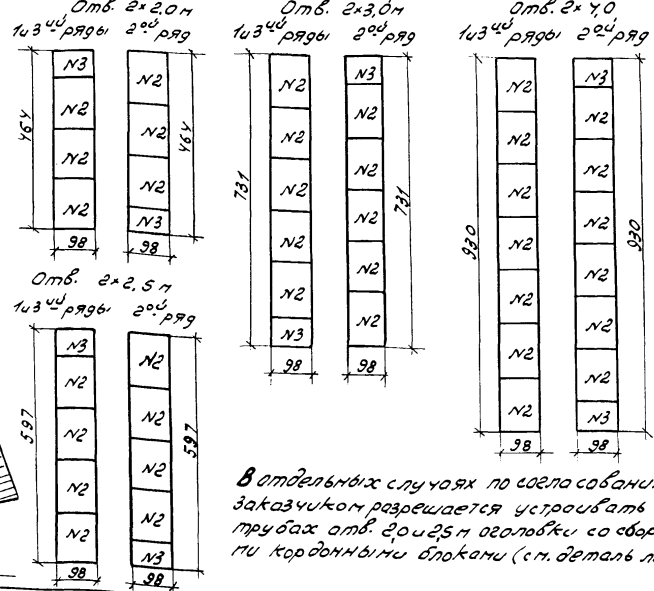 Отв. 2×2,0м
1и3ий ряды 2ой ряд
464
N3
N2
N2
N2
98
N2
N2
N2
N3
98
464
Отв. 2×3,0м
1и3ий ряды 2ой ряд
731
N2
N2
N2
N2
N2
N3
98
N3
N2
N2
N2
N2
N2
98
731
Отв. 2×4,0
1и3ий ряды 2ой ряд
930
N2
N2
N2
N2
N2
N2
N2
98
N3
N2
N2
N2
N2
N2
N2
N3
98
930
Отв. 2×2,5м
1и3ий ряды 2ой ряд
597
N3
N2
N2
N2
N2
98
N2
N2
N2
N2
N3
98
597
В отдельных случаях по согласовани
заказчиком разрешается устраивать
трубах отв. 2,0и2,5м оголовки со сбор
ми кордонными блоками (см. деталь